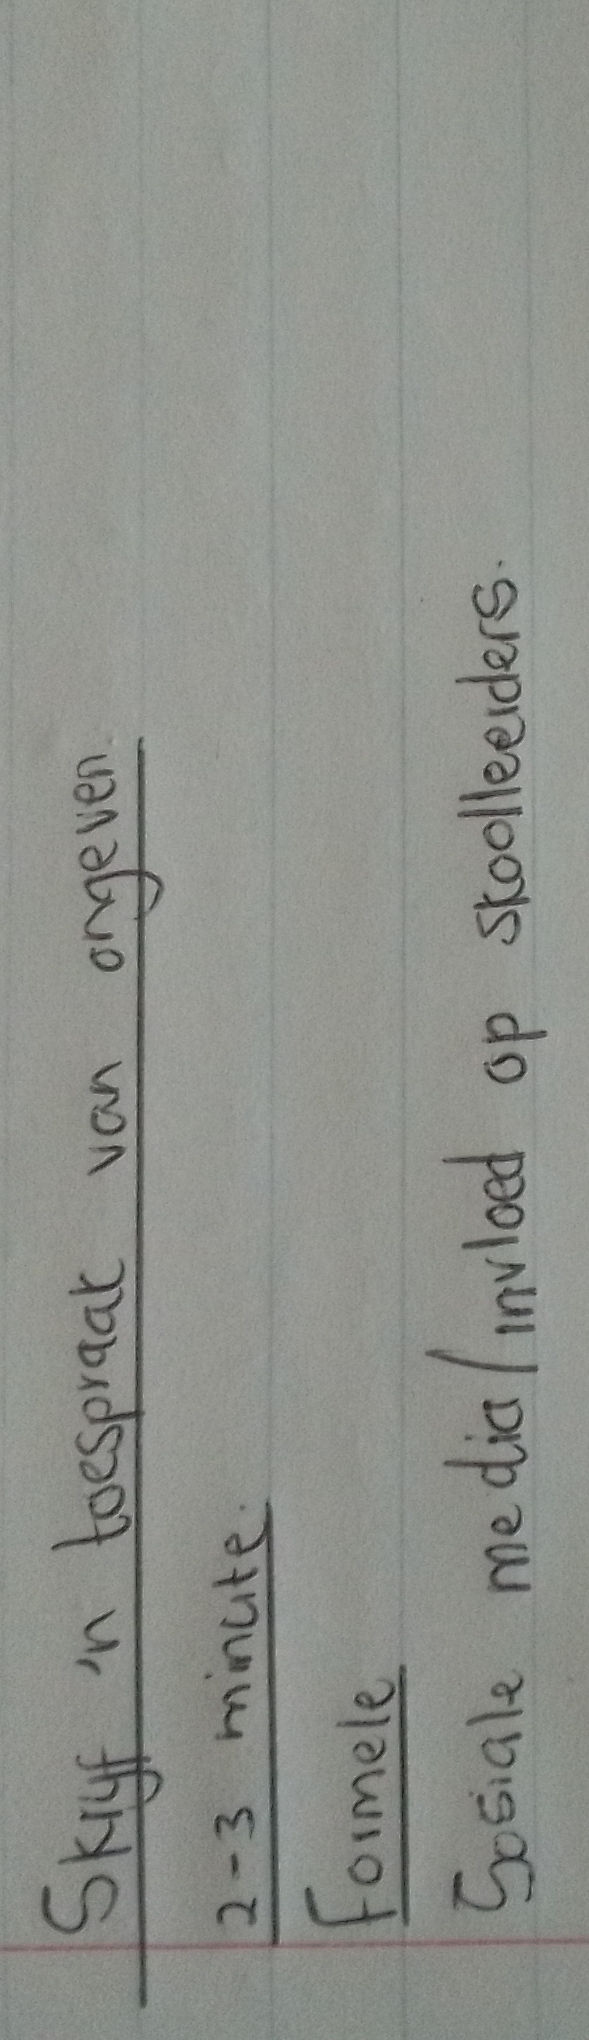 Skryf 'n toespraak van ongeveer.
2-3 minute.
Formele
Sosiale media/invloed op skoolleeiders.